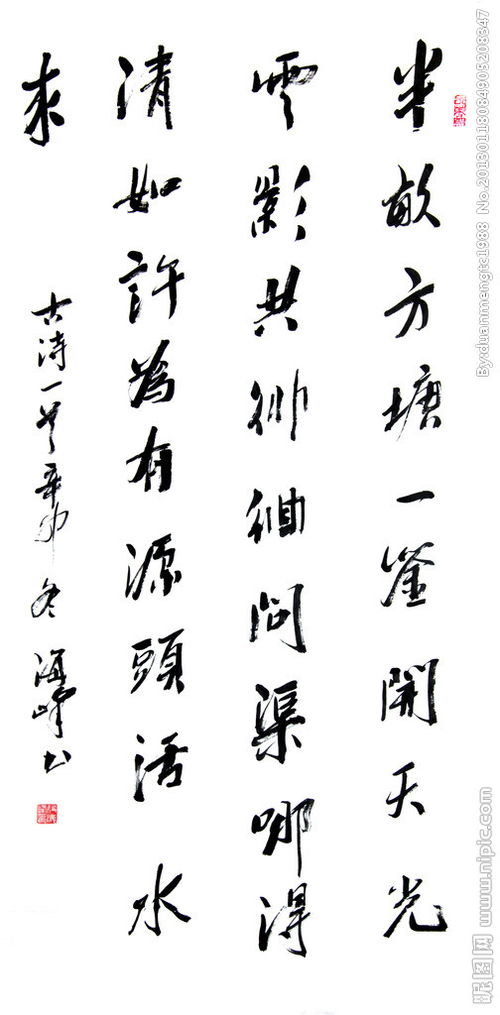 半畝方塘一鉴開天光
雲影共徘徊問渠哪得
清如許為有源頭活水
来
古诗一首辛卯冬海峰书
By:duanmengtc1988 No.20130118084905208347
昵图网 www.nipic.com